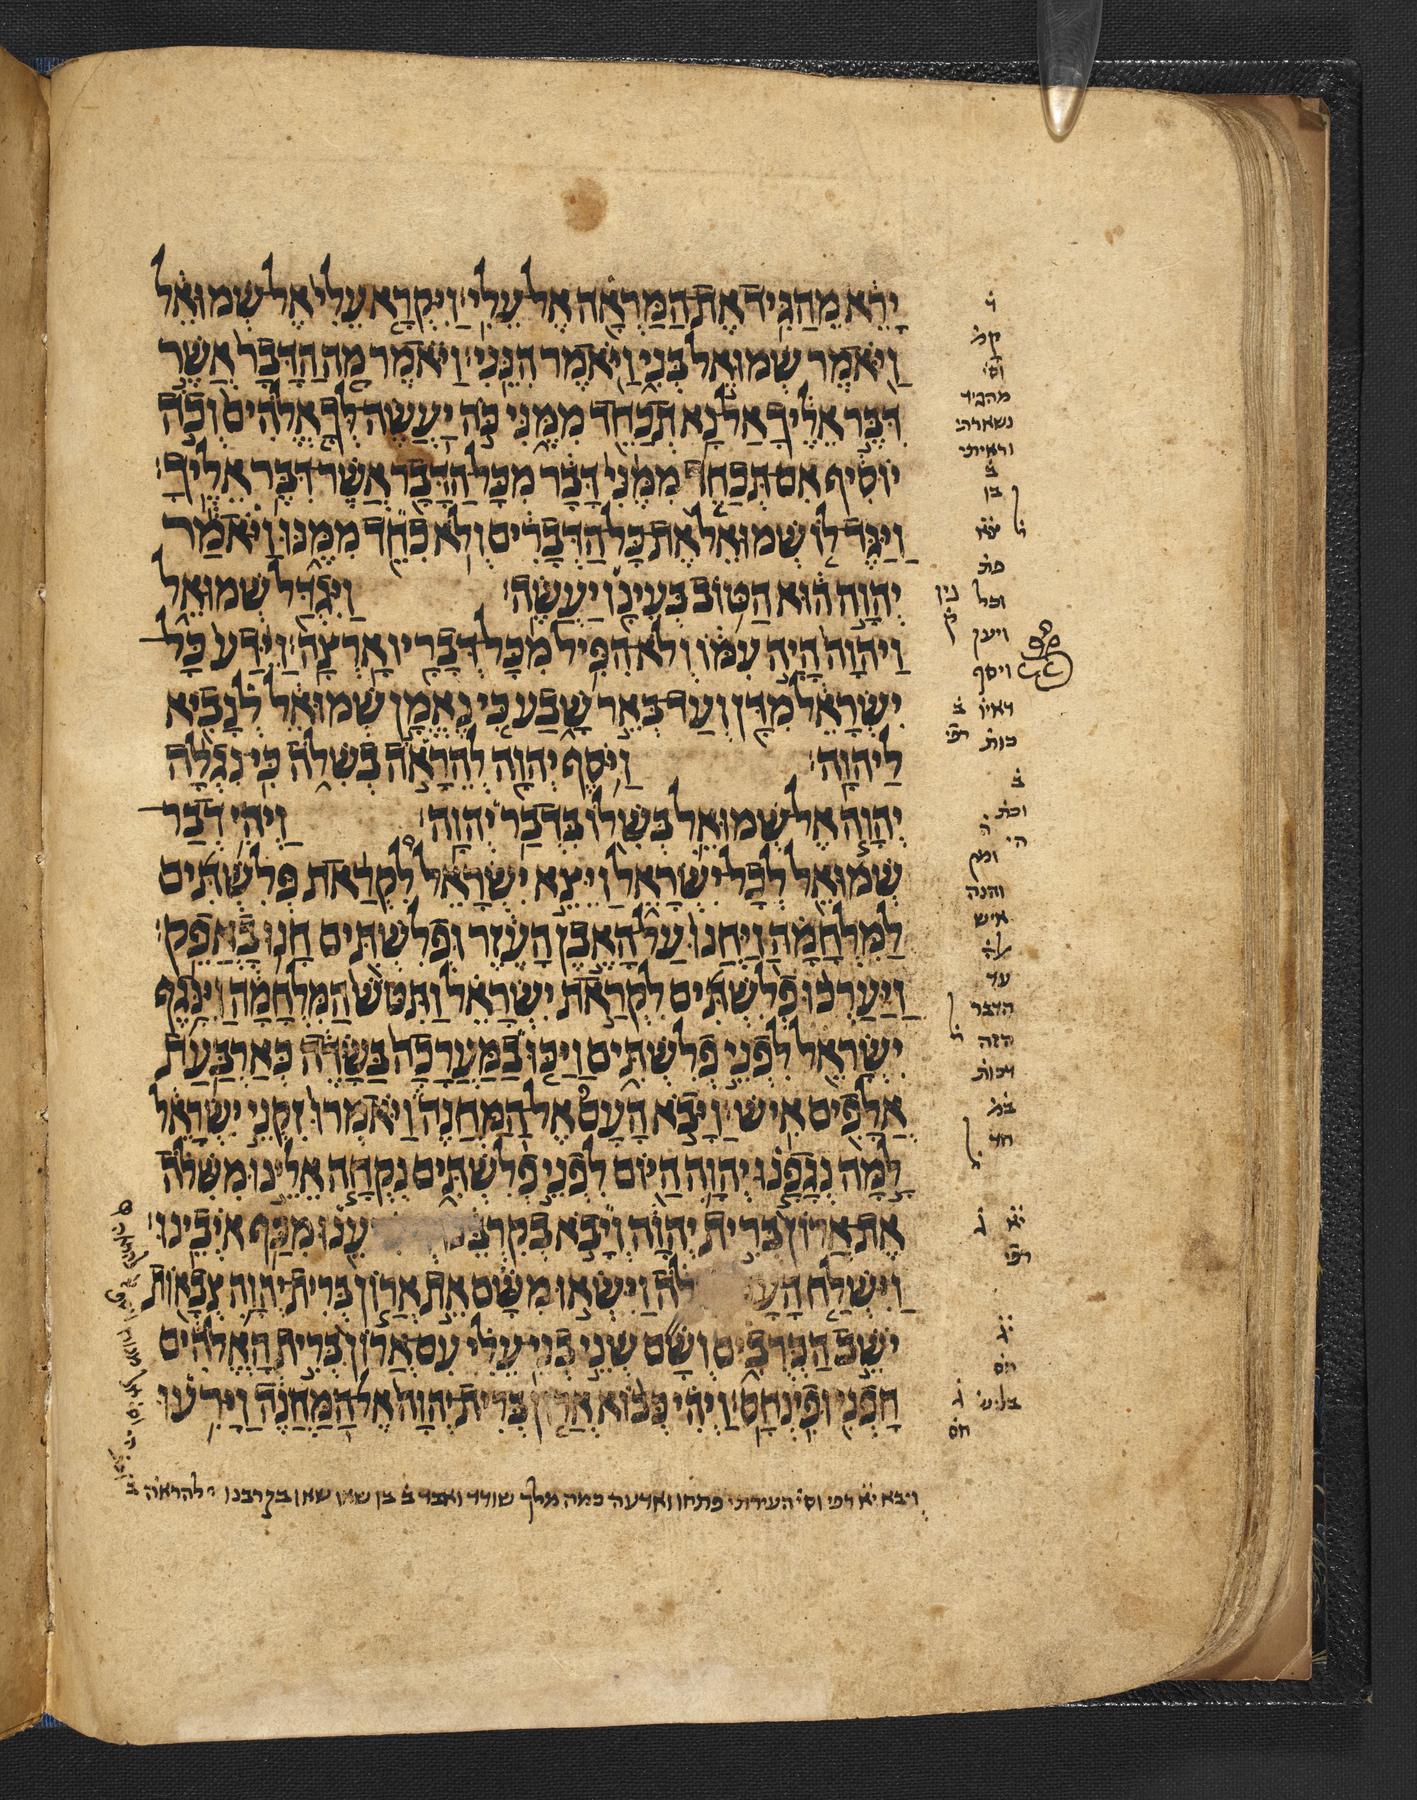 יָרֵא מֵהַגִּיד אֶת הַמַּרְאָה אֶל עֵלִי׃ וַיִּקְרָא עֵלִי אֶל שְׁמוּאֵל
וַיֹּאמֶר שְׁמוּאֵל בְּנִי וַיֹּאמֶר הִנֵּנִי׃ וַיֹּאמֶר מָה הַדָּבָר אֲשֶׁר
דִּבֶּר אֵלֶיךָ אַל נָא תְכַחֵד מִמֶּנִּי כֹּה יַעֲשֶׂה לְּךָ אֱלֹהִים וְכֹה
יוֹסִיף אִם תְּכַחֵד מִמֶּנִּי דָּבָר מִכָּל הַדָּבָר אֲשֶׁר דִּבֶּר אֵלֶיךָ׃
וַיַּגֶּד לוֹ שְׁמוּאֵל אֶת כָּל הַדְּבָרִים וְלֹא כִחֵד מִמֶּנּוּ וַיֹּאמַר
יְהוָה הוּא הַטּוֹב בְּעֵינָו יַעֲשֶׂה׃ וַיִּגְדַּל שְׁמוּאֵל
וַיהוָה הָיָה עִמּוֹ וְלֹא הִפִּיל מִכָּל דְּבָרָיו אָרְצָה׃ וַיֵּדַע כָּל
יִשְׂרָאֵל מִדָּן וְעַד בְּאֵר שָׁבַע כִּי נֶאֱמָן שְׁמוּאֵל לְנָבִיא
לַיהוָה׃ וַיֹּסֶף יְהוָה לְהֵרָאֹה בְשִׁלֹה כִּי נִגְלָה
יְהוָה אֶל שְׁמוּאֵל בְּשִׁלוֹ בִּדְבַר יְהוָה׃ וַיְהִי דְבַר
שְׁמוּאֵל לְכָל יִשְׂרָאֵל וַיֵּצֵא יִשְׂרָאֵל לִקְרַאת פְּלִשְׁתִּים
לַמִּלְחָמָה וַיַּחֲנוּ עַל הָאֶבֶן הָעֵזֶר וּפְלִשְׁתִּים חָנוּ בַאֲפֵק׃
וַיַּעַרְכוּ פְלִשְׁתִּים לִקְרַאת יִשְׂרָאֵל וַתִּטֹּשׁ הַמִּלְחָמָה וַיִּנָּגֶף
יִשְׂרָאֵל לִפְנֵי פְלִשְׁתִּים וַיַּכּוּ בַמַּעֲרָכָה בַּשָּׂדֶה כְּאַרְבַּעַת
אֲלָפִים אִישׁ׃ וַיָּבֹא הָעָם אֶל הַמַּחֲנֶה וַיֹּאמְרוּ זִקְנֵי יִשְׂרָאֵל
לָמָּה נְגָפָנוּ יְהוָה הַיּוֹם לִפְנֵי פְלִשְׁתִּים נִקְחָה אֵלֵינוּ מִשִּׁלֹה
אֶת אֲרוֹן בְּרִית יְהוָה וְיָבֹא בְקִרְבֵּנוּ מִכַּף אֹיְבֵינוּ׃
וַיִּשְׁלַח וַיִּשְׂאוּ מִשָּׁם אֵת אֲרוֹן בְּרִית יְהוָה צְבָאוֹת
יֹשֵׁב הַכְּרֻבִים וְשָׁם שְׁנֵי בְנֵי עֵלִי עִם אֲרוֹן בְּרִית הָאֱלֹהִים
חָפְנִי וּפִינְחָס׃ וַיְהִי כְּבוֹא אֲרוֹן בְּרִית יְהוָה אֶל הַמַּחֲנֶה וַיָּרִעוּ
מהגיד
נשארתי
וראיתי
בן
וכל
ויען
ויסף
ראיו
כות
והנה
איש
עד
הדבר
הזה
וכות
ויבא יא רפי וסי העירתי פתחו וארעה כמה מלך שודד ואבד ב בן שאו שאון בקרבנו להראה ב